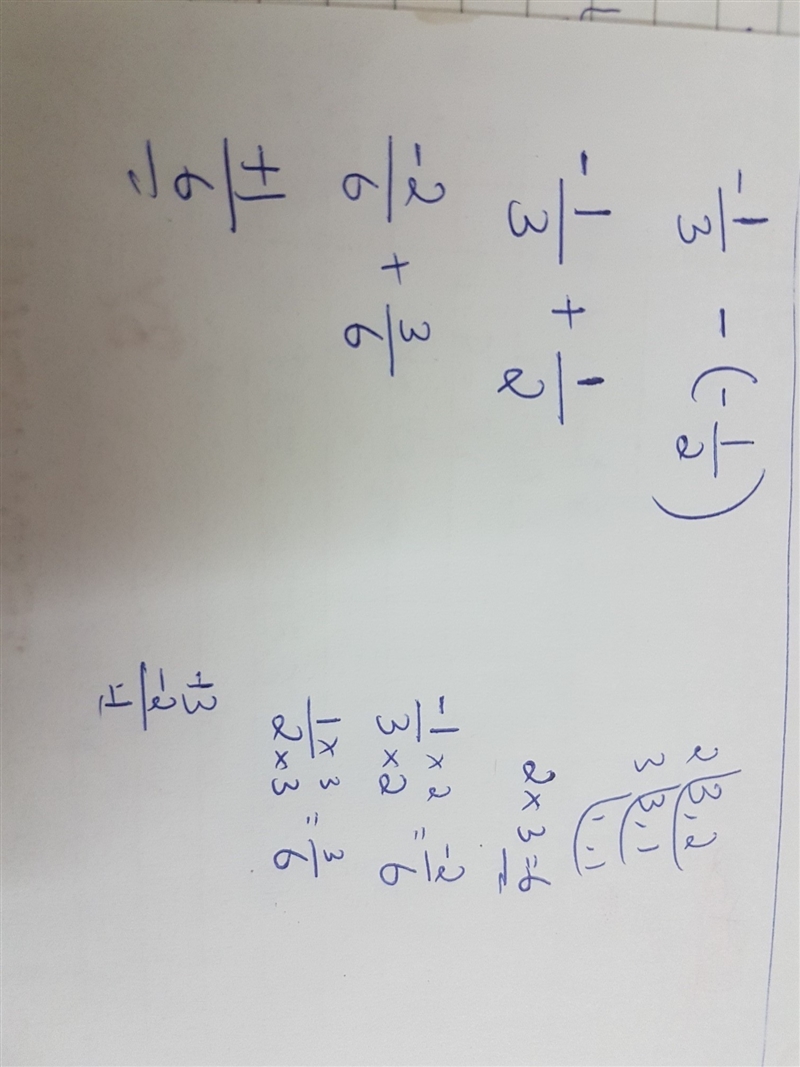 -1/3 - (-1/2)
-1/3 + 1/2
-2/6 + 3/6
+1/6
2 | 3, 2
3 | 3, 1
1, 1
2 × 3 = 6
-1/3 × 2/2 = -2/6
1/2 × 3/3 = 3/6
+3
-2
+1